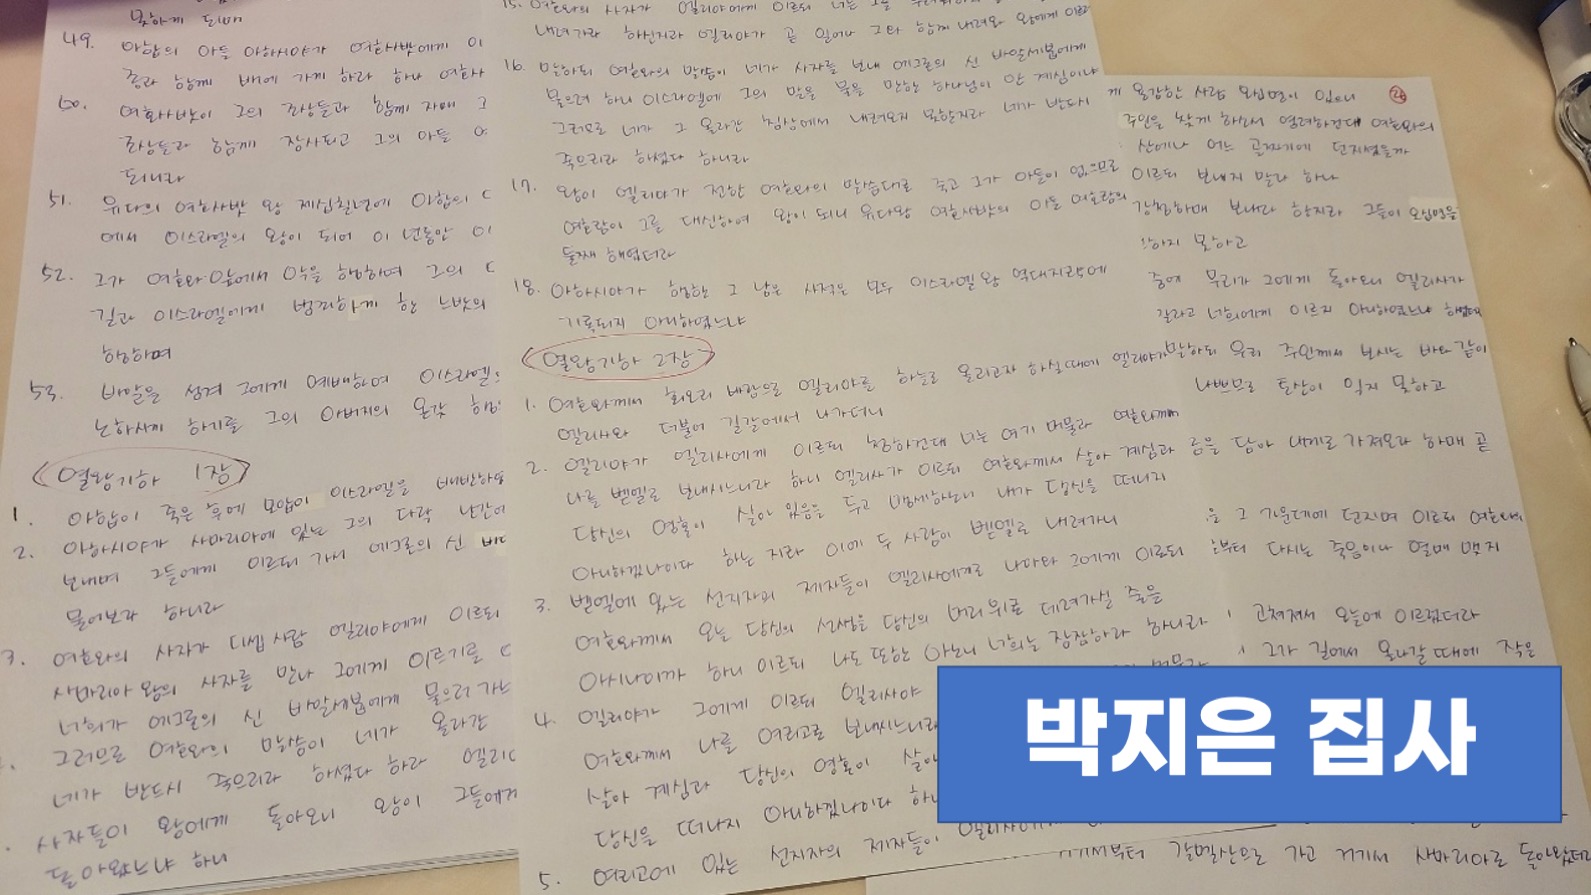 못하게 되매
49. 아합의 아들 아하시야가 여호사밧에게 이
종과 함께 배에 가게 하라 하나 여호사
60. 여호사밧이 그의 조상들과 함께 자매 그
조상들과 함께 장사되고 그의 아들 여
되니라
51. 유다의 여호사밧 왕 제십칠년에 아합의 C
에서 이스라엘의 왕이 되어 이 년동안 이
52. 그가 여호와 앞에서 악을 행하여 그의 C
길과 이스라엘에게 범죄하게 한 느밧의
행하며
53. 바알을 섬겨 그에게 예배하여 이스라엘
노하시게 하기를 그의 아버지의 온갖 행
<열왕기하 1장>
1. 아합이 죽은 후에 모압이 이스라엘을 배반하였
2. 아하시야가 사마리아에 있는 그의 다락 난간에
보내며 그들에게 이르되 가서 에그론의 신 바
물어보라 하니라
3. 여호와의 사자가 디셉 사람 엘리야에게 이르되
사마리아 왕의 사자를 만나 그에게 이르기를 C
너희가 에그론의 신 바알세붑에게 물으러 가는
그러므로 여호와의 말씀이 네가 올라간
네가 반드시 죽으리라 하셨다 하라 엘리C
사자들이 왕에게 돌아오니 왕이 그들에게
돌아왔느냐 하니
15. 여호와의 사자가 엘리야에게 이르되 너는 그를
내려가라 하신지라 엘리야가 곧 일어나 그와 함께 내려와 왕에게 이르
16. 말하되 여호와의 말씀이 네가 사자를 보내 에그론의 신 바알세붑에게
물으려 하니 이스라엘에 그의 말을 물을 만한 하나님이 안 계심이냐
그러므로 네가 그 올라간 침상에서 내려오지 못할지라 네가 반드시
죽으리라 하셨다 하니라
17. 왕이 엘리야가 전한 여호와의 말씀대로 죽고 그가 아들이 없으므로
여호람이 그를 대신하여 왕이 되니 유다왕 여호사밧의 아들 여호람의
둘째 해였더라
18. 아하시야가 행한 그 남은 사적은 모두 이스라엘 왕 역대지략에
기록되지 아니하였느냐
<열왕기하 2장>
1. 여호와께서 회오리 바람으로 엘리야를 하늘로 올리고자 하실 때에 엘리야가
엘리사와 더불어 길갈에서 나가더니
2. 엘리야가 엘리사에게 이르되 청하건대 너는 여기 머물라 여호와께서
나를 벧엘로 보내시느니라 하니 엘리사가 이르되 여호와께서 살아 계심과
당신의 영혼이 살아 있음을 두고 맹세하노니 내가 당신을 떠나지
아니하겠나이다 하는 지라 이에 두 사람이 벧엘로 내려가니
3. 벧엘에 있는 선지자의 제자들이 엘리사에게로 나아와 그에게 이르되
여호와께서 오늘 당신의 선생을 당신의 머리 위로 데려가실 줄을
아시나이까 하니 이르되 나도 또한 아노니 너희는 잠잠하라 하니라
4. 엘리야가 그에게 이르되 엘리사야 머물라
여호와께서 나를 여리고로 보내시느니라
살아 계심과 당신의 영혼이 살아
당신을 떠나지 아니하겠나이다 하
5. 여리고에 있는 선지자의 제자들이 엘리사에게
게 용감한 사람 오십명이 있으니
주인을 찾게 하소서 염려하건대 여호와의
산에나 어느 골짜기에 던지셨을까
이르되 보내지 말라 하나
강청하매 보내라 한지라 그들이 오십명을
하지 못하고
중에 무리가 그에게 돌아오니 엘리사가
갈라고 너희에게 이르지 아니하였느냐 하였더라
말하되 우리 주인께서 보시는 바와 같이
나쁘므로 토산이 익지 못하고
금을 담아 내게로 가져오라 하매 곧
을 그 가운데에 던지며 이르되 여호와의
부터 다시는 죽음이나 열매 맺지
고쳐져서 오늘에 이르렀더라
그가 길에서 올라갈 때에 작은
거기서부터 갈멜산으로 가고 거기서 사마리아로 돌아왔더라
박지은 집사